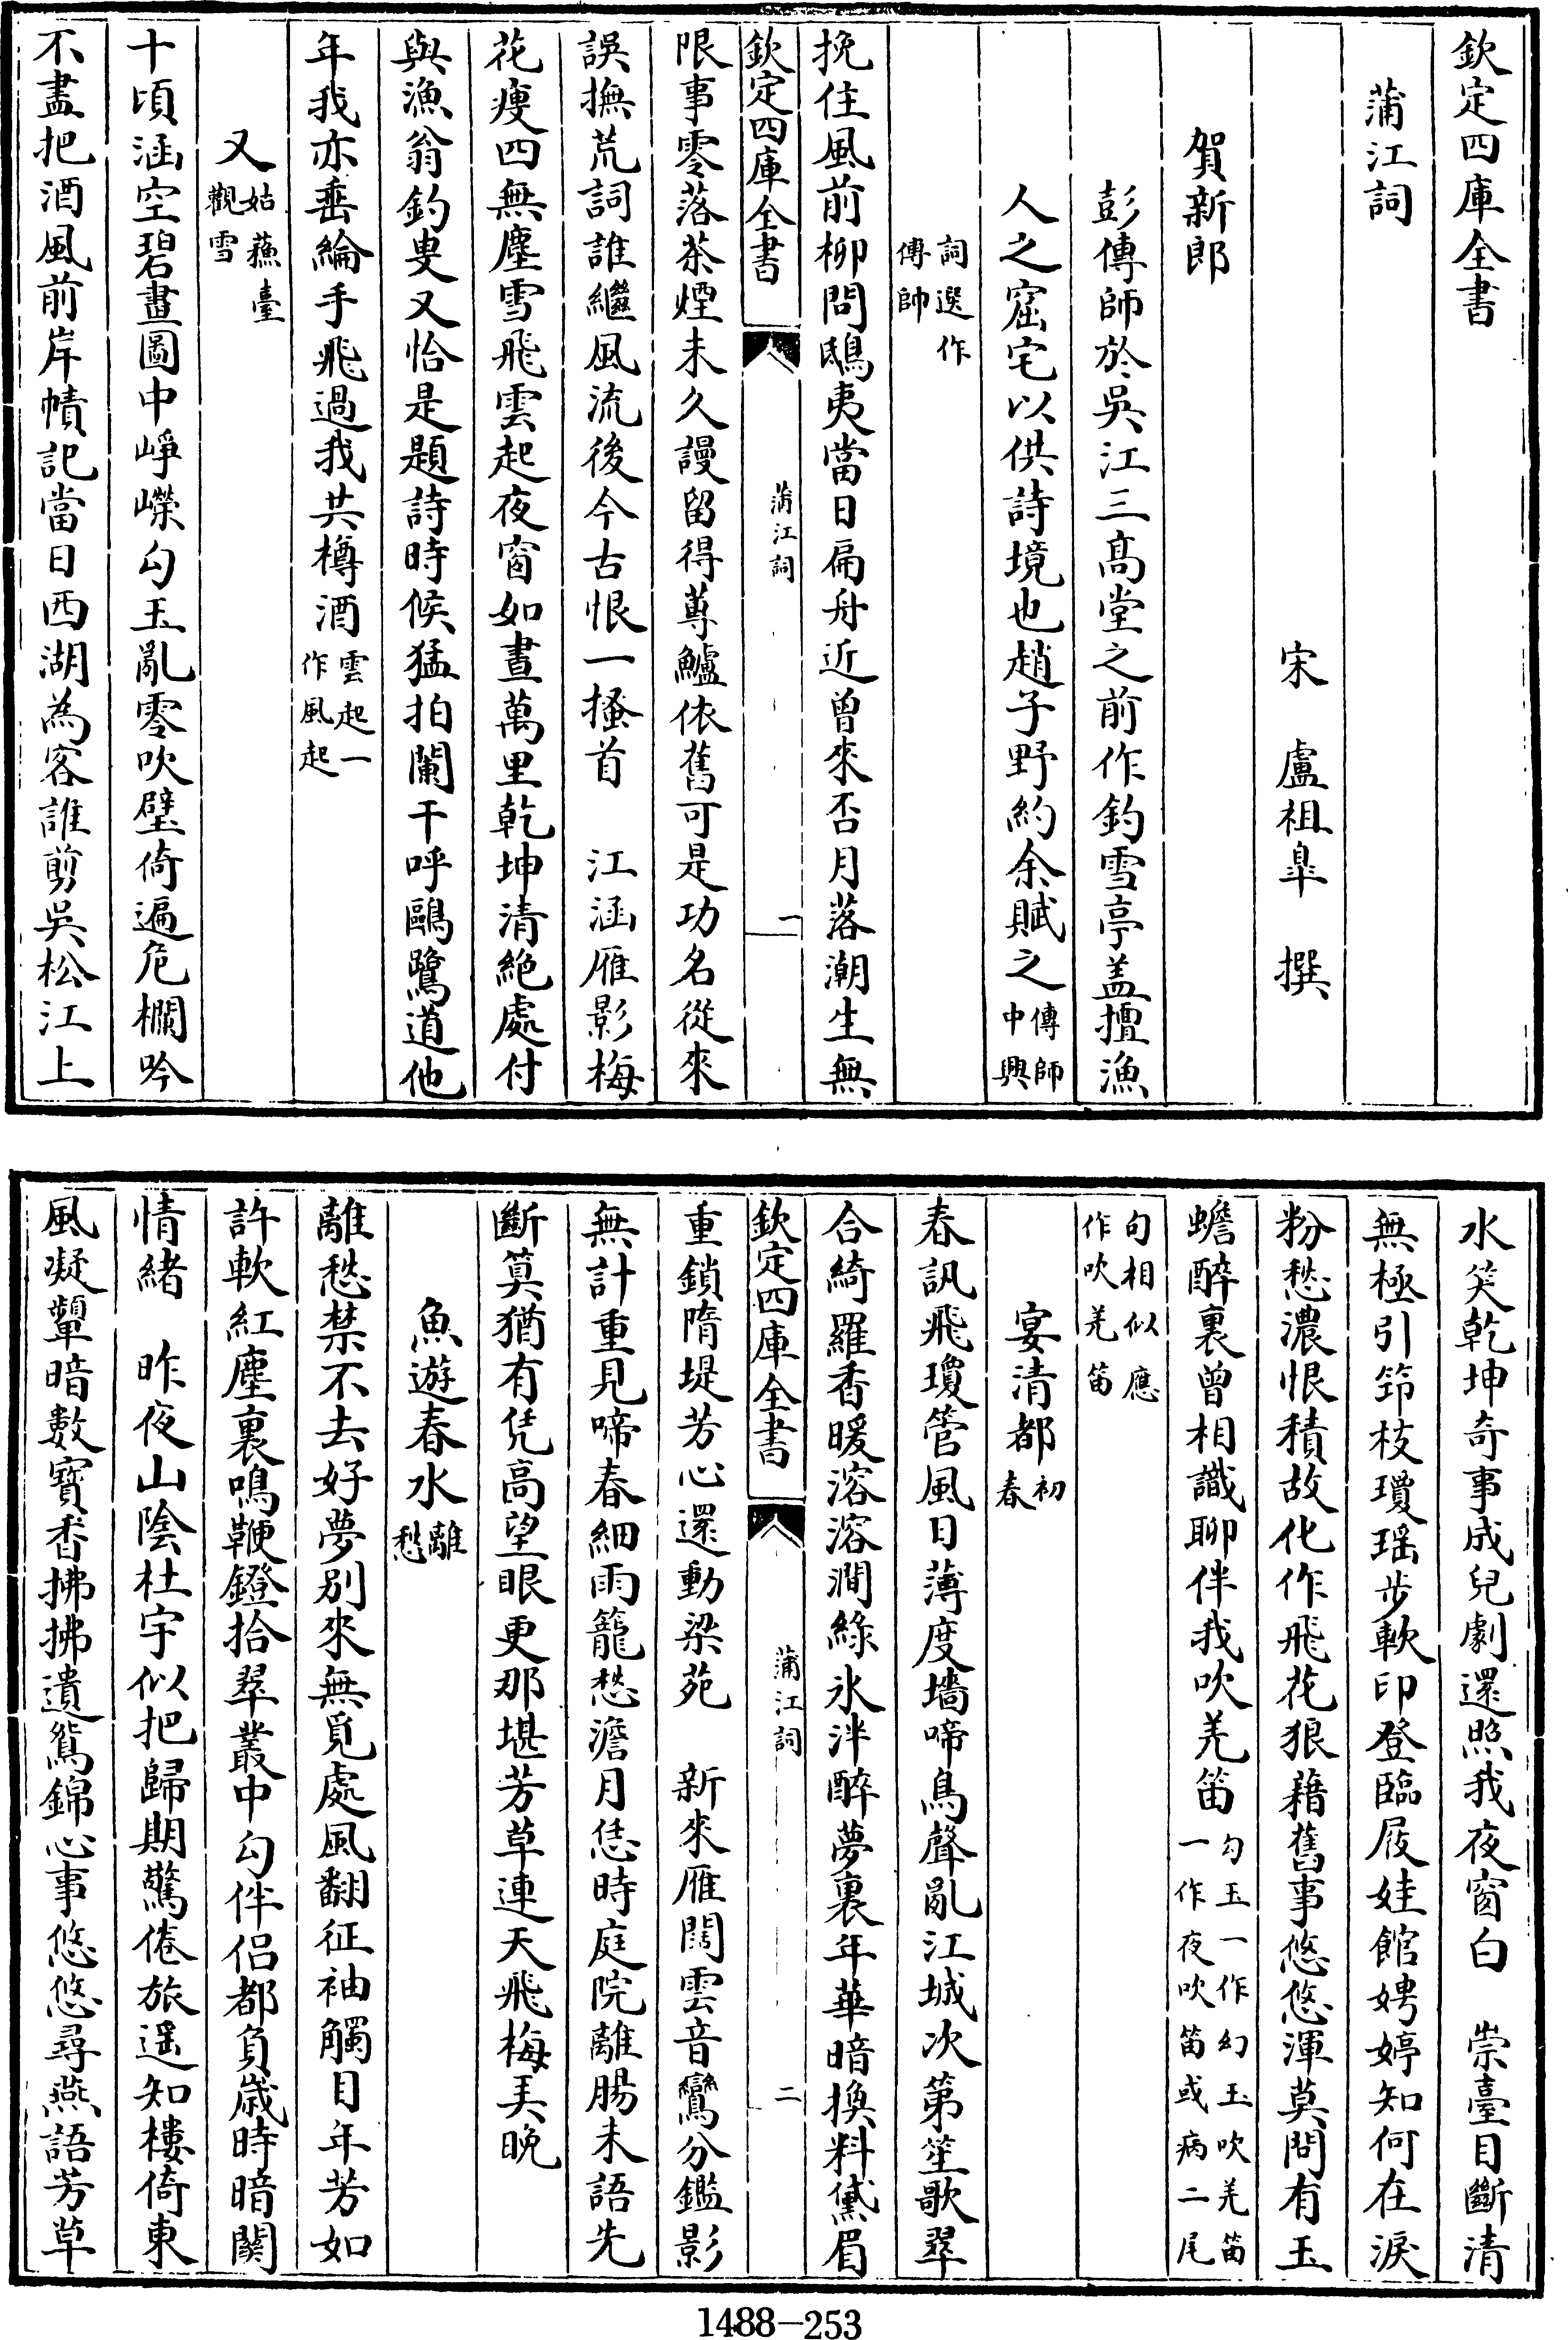 欽定四庫全書
蒲江詞
宋　盧祖皐　撰
賀新郎
彭傳師於吳江三髙堂之前作釣雪亭盖擅漁
人之窟宅以供詩境也趙子野約余賦之傳師中興
詞選作傳帥
挽住風前柳問鴟夷當日扁舟近曾來否月落潮生無
欽定四庫全書　蒲江詞　一
限事零落茶煙未久謾留得蓴鱸依舊可是功名從來
誤撫荒祠誰繼風流後今古恨一搔首　江涵雁影梅
花瘦四無塵雪飛雲起夜窗如晝萬里乾坤清絶處付
與漁翁釣叟又恰是題詩時候猛拍闌干呼鷗鷺道他
年我亦垂綸手飛過我共樽酒雲起一作風起
又姑蘇臺觀雪
十頃涵空碧畫圖中崢嶸勾玉亂零吹壁倚遍危欄吟
不盡把酒風前岸幘記當日西湖為客誰剪吳松江上
水笑乾坤奇事成兒劇還照我夜窗白　崇臺目斷清
無極引筇枝瓊瑶步軟印登臨屐娃館娉婷知何在淚
粉愁濃恨積故化作飛花狼藉舊事悠悠渾莫問有玉
蟾醉裏曾相識聊伴我吹羌笛勾玉一作幻玉吹羌笛一作夜吹笛或病二尾
句相似應作吹羌笛
宴清都初春
春訊飛瓊管風日薄度墻啼鳥聲亂江城次第笙歌翠
合綺羅香暖溶溶澗緑氷泮醉夢裏年華暗換料黛眉
欽定四庫全書　蒲江詞　二
重鎖隋堤芳心還動梁苑　新來雁闊雲音鸞分鑑影
無計重見啼春細雨籠愁澹月恁時庭院離腸未語先
斷算猶有凭髙望眼更那堪芳草連天飛梅弄晚
魚遊春水離愁
離愁禁不去好夢别來無覓處風翻征袖觸目年芳如
許軟紅塵裏鳴鞭鐙拾翠叢中勾伴侣都負嵗時暗關
情緒　昨夜山陰杜宇似把歸期驚倦旅遥知樓倚東
風凝顰暗數寳香拂拂遺鴛錦心事悠悠尋燕語芳草
1488-253